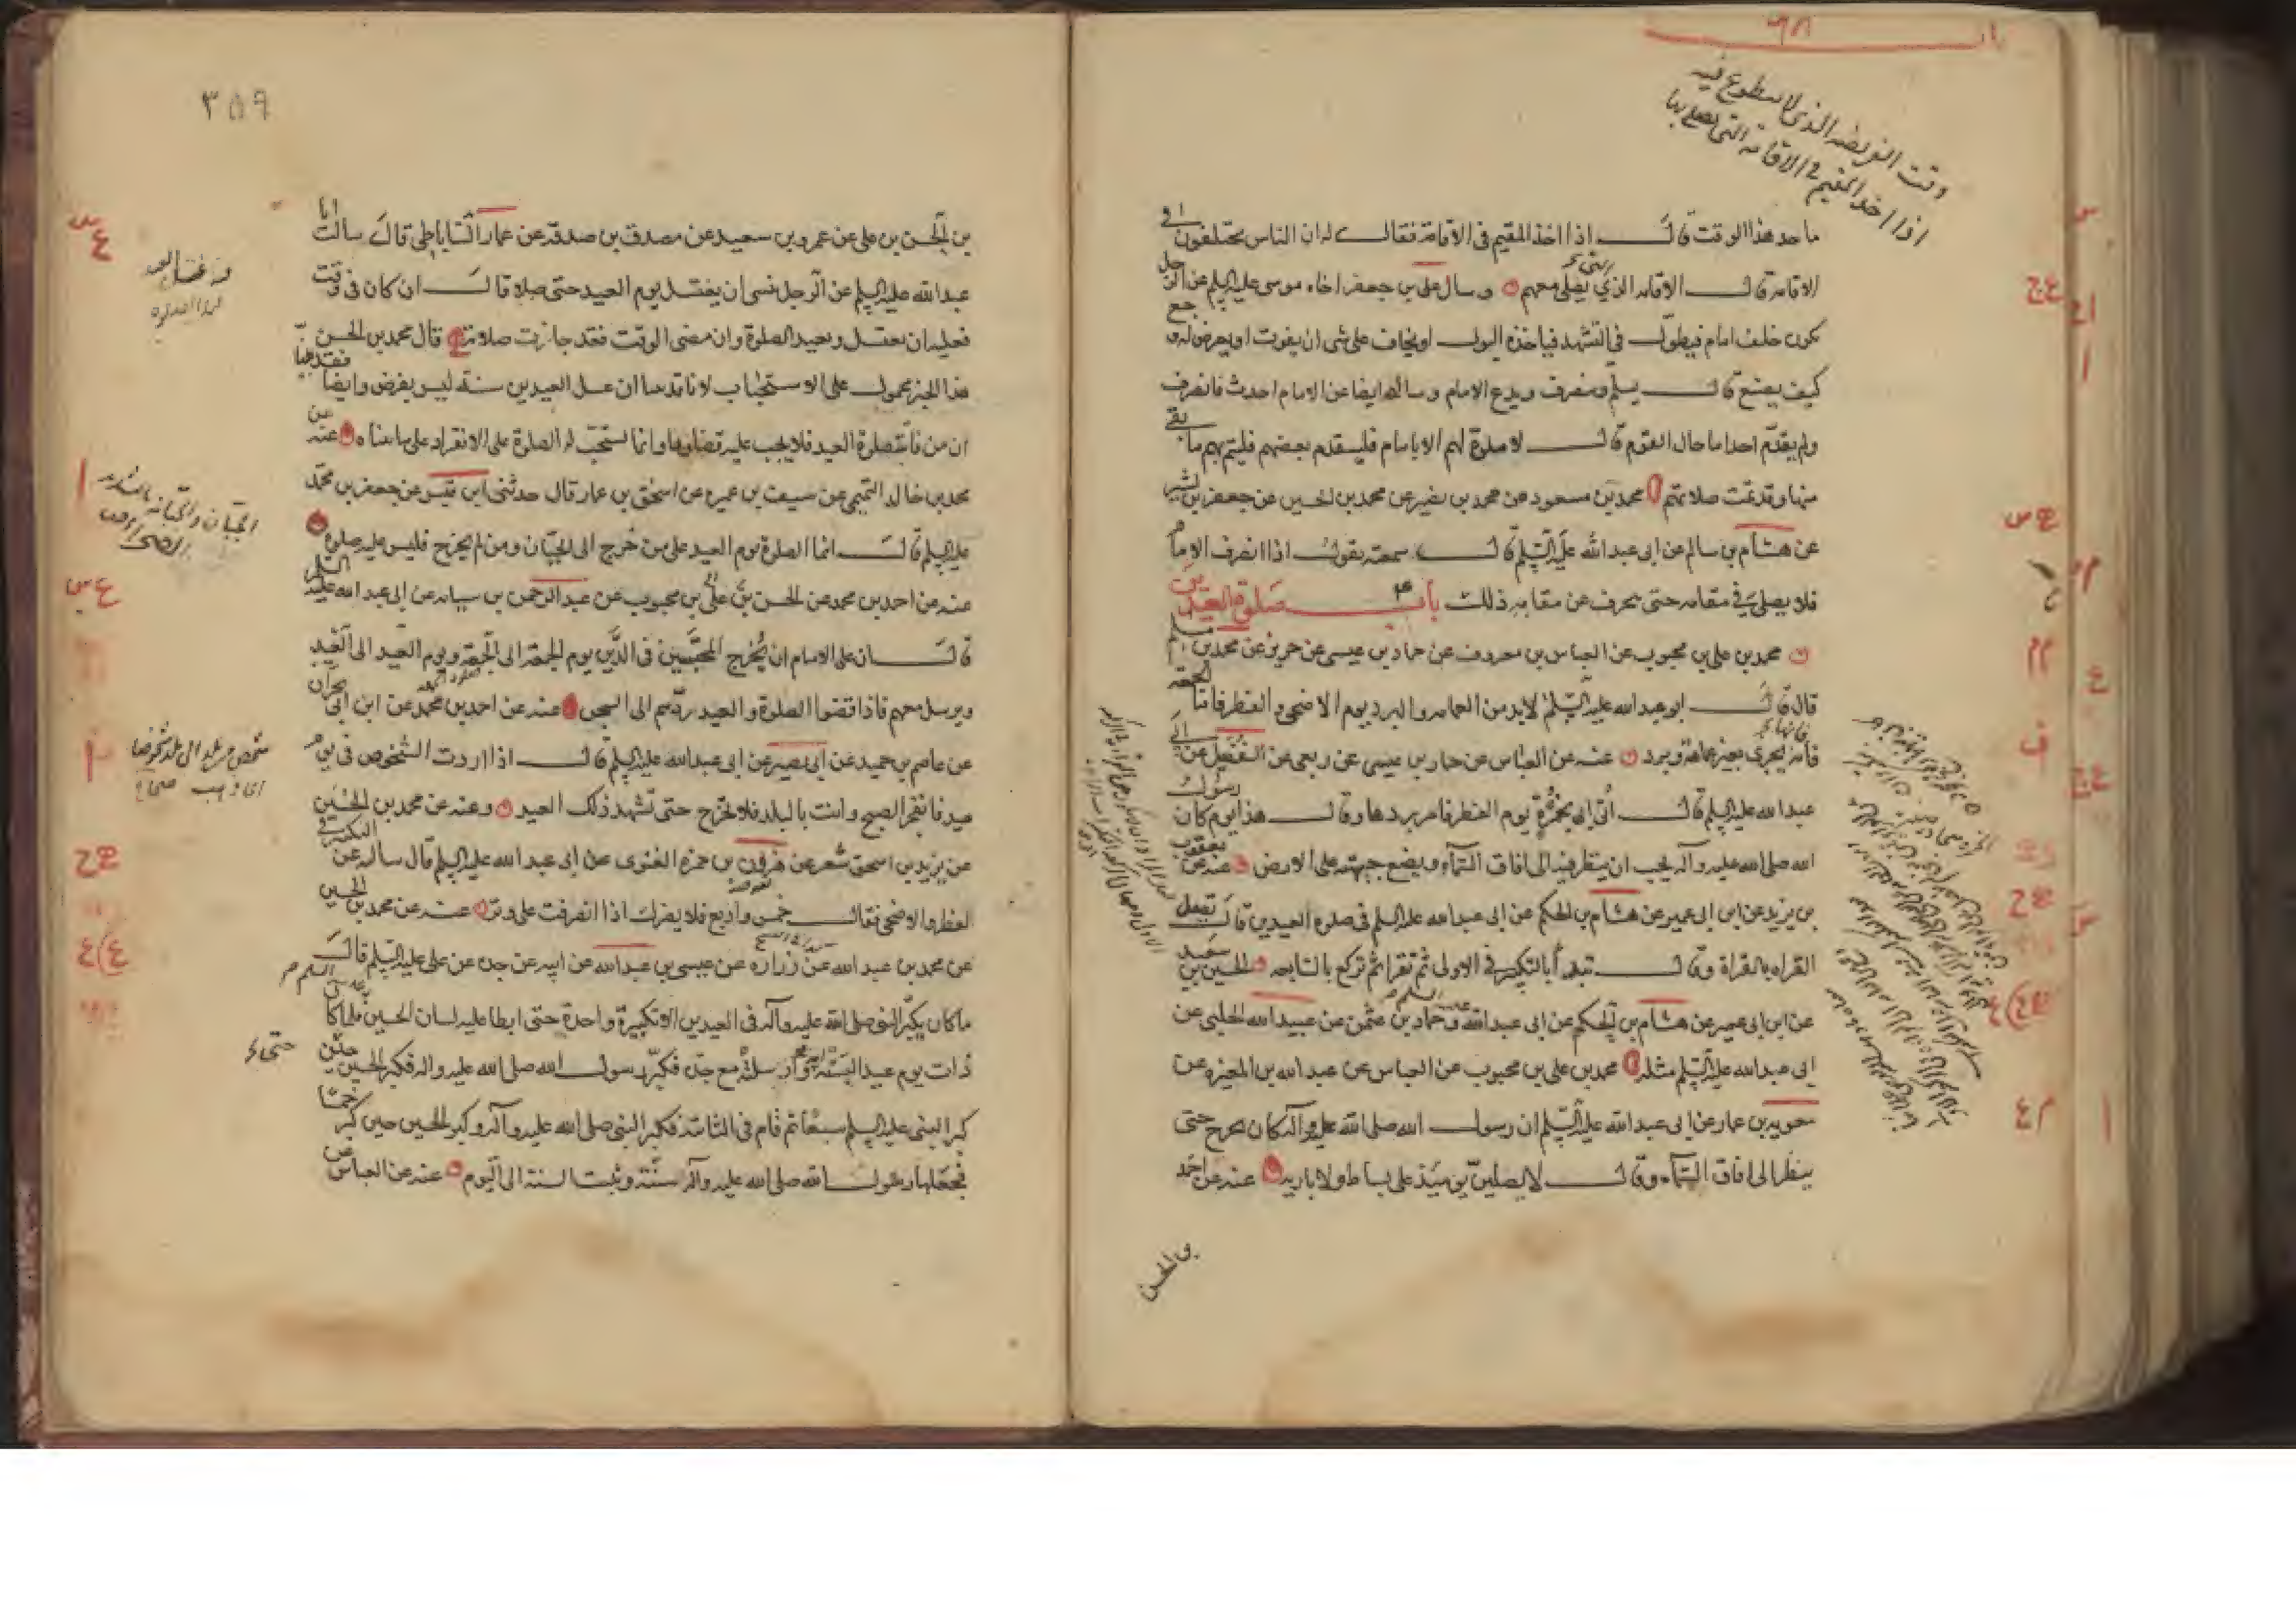 ما حد هذا الوقت قال اذا اخذ المقيم فى الاقامة فقال له ان الناس يختلفون فى
الاقامة قال الاقامه الذى يصلى معهم وسال على بن جعفر اخاه موسى عليه السلم عن الرجل
يكون خلف امام فيطول فى التشهد فياخذه البول او يخاف على شى ان يفوت او يعرض له وجع
كيف يصنع قال يسلم وينصرف ويدع الامام وساله ايضا عن الامام احدث فانصرف
ولم يقدم احدا ما حال القوم قال لا صلوة لهم الا بامام فليتقدم بعضهم فليتم بهم ما بقى
منها وقد تمت صلاتهم محمد بن مسعود عن محمد بن نصير عن محمد بن الحسين عن جعفر بن بشير
عن هشام بن سالم عن ابى عبد الله عليه السلم قال سمعته يقول اذا انصرف الامام
فلا يصلى فى مقامه حتى ينحرف عن مقامه ذلك باب صلوة العيدين
محمد بن على بن محبوب عن العباس بن معروف عن حماد بن عيسى عن حريز عن محمد بن مسلم
قال قال ابو عبد الله عليه السلم لا بد من العمامه والبرد يوم الاضحى والفطر فاما الجمعة
فانه يجزى بغير عمامة وبرد عنه عن العباس عن حماد بن عيسى عن ربعى عن الفضيل عن ابى
عبد الله عليه السلم قال اتى ابى بخمرة يوم الفطر فامر بردها وقال هذا يوم كان رسول
الله صلى الله عليه وآله يحب ان ينظر فيه الى افاق السماء ويضع جبهته على الارض عنه عن يعقوب
بن يزيد عن ابن ابى عمير عن هشام بن الحكم عن ابى عبد الله عليه السلم فى صلوة العيدين قال تصل
القراه بالقراة وقال تبدأ بالتكبير فى الاولى ثم تقرا ثم تركع بالسابعه الحسين بن سعيد
عن ابن ابى عمير عن هشام بن الحكم عن ابى عبد الله وحماد بن عثمن عن عبيد الله الحلبى عن
ابى عبد الله عليه السلم مثله محمد بن على بن محبوب عن العباس عن عبد الله بن المغيره عن
معويه بن عمار عن ابى عبد الله عليه السلم ان رسول الله صلى الله عليه وآله كان يخرج حتى
ينظر الى افاق السماء وقال لا يصلين يومئذ على بساط ولا باريه عنه عن احمد
بن الحسن
وقت الفريضه الذى لا يتطوع فيه
اذا اخذ المقيم فى الاقامة التى يصلى بها
٣٥٩
بن الحسن بن على عن عمرو بن سعيد عن مصدق بن صدقة عن عمار الساباطى قال سالت ابا
عبد الله عليه السلم عن الرجل نسى ان يغتسل يوم العيد حتى صلى قال ان كان فى وقت
فعليه ان يغتسل ويعيد الصلوة وان مضى الوقت فقد جازت صلاته قال محمد بن الحسن
هذا الخبر محمول على الاستحباب لانا قدمنا ان غسل العيدين سنة ليس بفرض وايضا فقد بينا
ان من فاتته صلوة العيد فلا يجب عليه قضاؤها وانما يستحب له الصلوة على الانفراد على ما بيناه عنه عن
محمد بن خالد التميمى عن سيف بن عميرة عن اسحق بن عمار قال حدثنى ابن قيس عن جعفر بن محمد
عليه السلم قال انما الصلوة يوم العيد على من خرج الى الجبان ومن لم يخرج فليس عليه صلوة
عنه عن احمد بن محمد عن الحسن بن على بن محبوب عن عبد الرحمن بن سيابه عن ابى عبد الله عليه السلم
قال ان على الامام ان يخرج المحبسين فى الدين يوم الجمعة الى الجمعة ويوم العيد الى العيد
ويرسل معهم فاذا قضوا الصلوة والعيد ردهم الى السجن عنه عن احمد بن محمد عن ابن ابى نجران
عن عاصم بن حميد عن ابى بصير عن ابى عبد الله عليه السلم قال اذا اردت الشخوص فى يوم
عيد فانفجر الصبح وانت بالبلد فلا تخرج حتى تشهد ذلك العيد وعنه عن محمد بن الحسين
عن يزيد بن اسحق شعر عن هرون بن حمزه الغنوى عن ابى عبد الله عليه السلم قال سالته عن التكبير فى
الفطر والاضحى فقال خمس واربع فلا يضرك اذا انصرفت على وتر عنه عن محمد بن الحسين
عن محمد بن عبد الله عن زراره عن عيسى بن عبد الله عن ابيه عن جده عن على عليه السلم قال
ما كان يكبر النبى صلى الله عليه وآله فى العيدين الا تكبيرة واحدة حتى ابطا عليه لسان الحسين فلما كان
ذات يوم عيد البسته امه وارسلته مع جده فكبر رسول الله صلى الله عليه واله فكبر الحسين حين
كبر النبى عليه السلم سبعا ثم قام فى الثانية فكبر النبى صلى الله عليه وآله وكبر الحسين حين كبر خمسا
فجعلها رسول الله صلى الله عليه وآله سنة وثبت السنة الى اليوم عنه عن العباس عن
الجبان والجبانه بالتشديد
الصحراء
شخص من بلد الى بلد شخوصا
اى ذهب صحاح
حتى